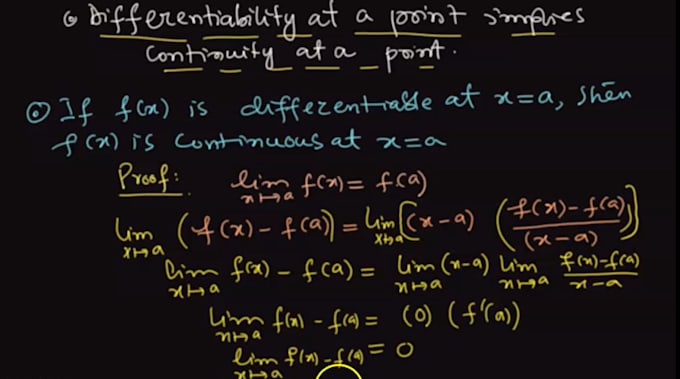 Differentiability at a point implies
Continuity at a point.
If f(x) is differentiable at x=a, then
f(x) is continuous at x=a
Proof: lim x→a f(x) = f(a)
lim x→a (f(x) - f(a)) = lim x→a [(x-a) (f(x)-f(a)/(x-a))]
lim x→a f(x) - f(a) = lim x→a (x-a) lim x→a f(x)-f(a)/x-a
lim x→a f(x) - f(a) = (0) (f'(a))
lim x→a f(x) - f(a) = 0